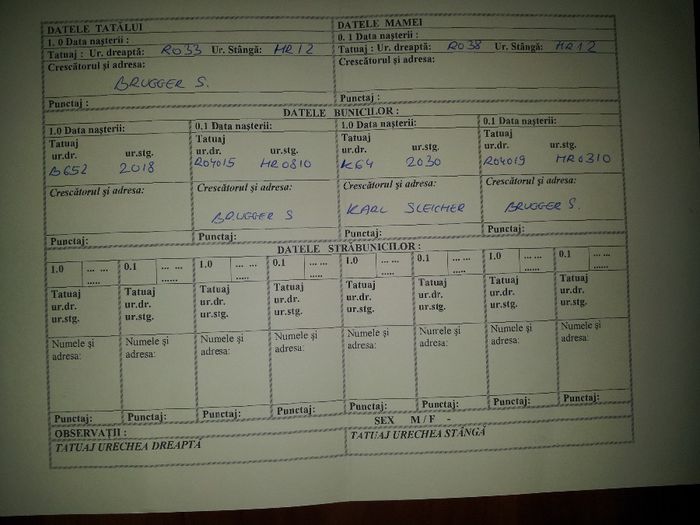 DATELE TATĂLUI
DATELE MAMEI
1. 0 Data nașterii :
0. 1 Data nașterii :
Tatuaj : Ur. dreaptă: RO33 Ur. Stângă: HR12
Tatuaj : Ur. dreaptă: RO38 Ur. Stângă: HR12
Crescătorul și adresa:
Crescătorul și adresa:
BRUGGER S.
Punctaj :
Punctaj :
DATELE BUNICILOR :
1.0 Data nașterii:
0.1 Data nașterii:
1.0 Data nașterii:
0.1 Data nașterii:
Tatuaj
Tatuaj
Tatuaj
Tatuaj
ur.dr. ur.stg.
ur.dr. ur.stg.
ur.dr. ur.stg.
ur.dr. ur.stg.
B652 2018
RO4015 HR0810
K64 2030
RO4019 HR0310
Crescătorul și adresa:
Crescătorul și adresa:
Crescătorul și adresa:
Crescătorul și adresa:
BRUGGER S
KARL SLEICHER
BRUGGER S.
Punctaj:
Punctaj:
Punctaj:
Punctaj:
DATELE STRĂBUNICILOR :
1.0 ... ... .....
0.1 ... ... .....
1.0 ... ... .....
0.1 ... ... .....
1.0 ... ... .....
0.1 ... ... .....
1.0 ... ... .....
0.1 ... ... .....
Tatuaj Tatuaj Tatuaj Tatuaj Tatuaj Tatuaj Tatuaj Tatuaj
ur.dr. ur.dr. ur.dr. ur.dr. ur.dr. ur.dr. ur.dr. ur.dr.
ur.stg. ur.stg. ur.stg. ur.stg. ur.stg. ur.stg. ur.stg. ur.stg.
Numele și Numele și Numele și Numele și Numele și Numele și Numele și Numele și
adresa: adresa: adresa: adresa: adresa: adresa: adresa: adresa:
Punctaj: Punctaj: Punctaj: Punctaj: Punctaj: Punctaj: Punctaj: Punctaj:
OBSERVAȚII :
SEX M / F -
TATUAJ URECHEA DREAPTĂ
TATUAJ URECHEA STÂNGĂ